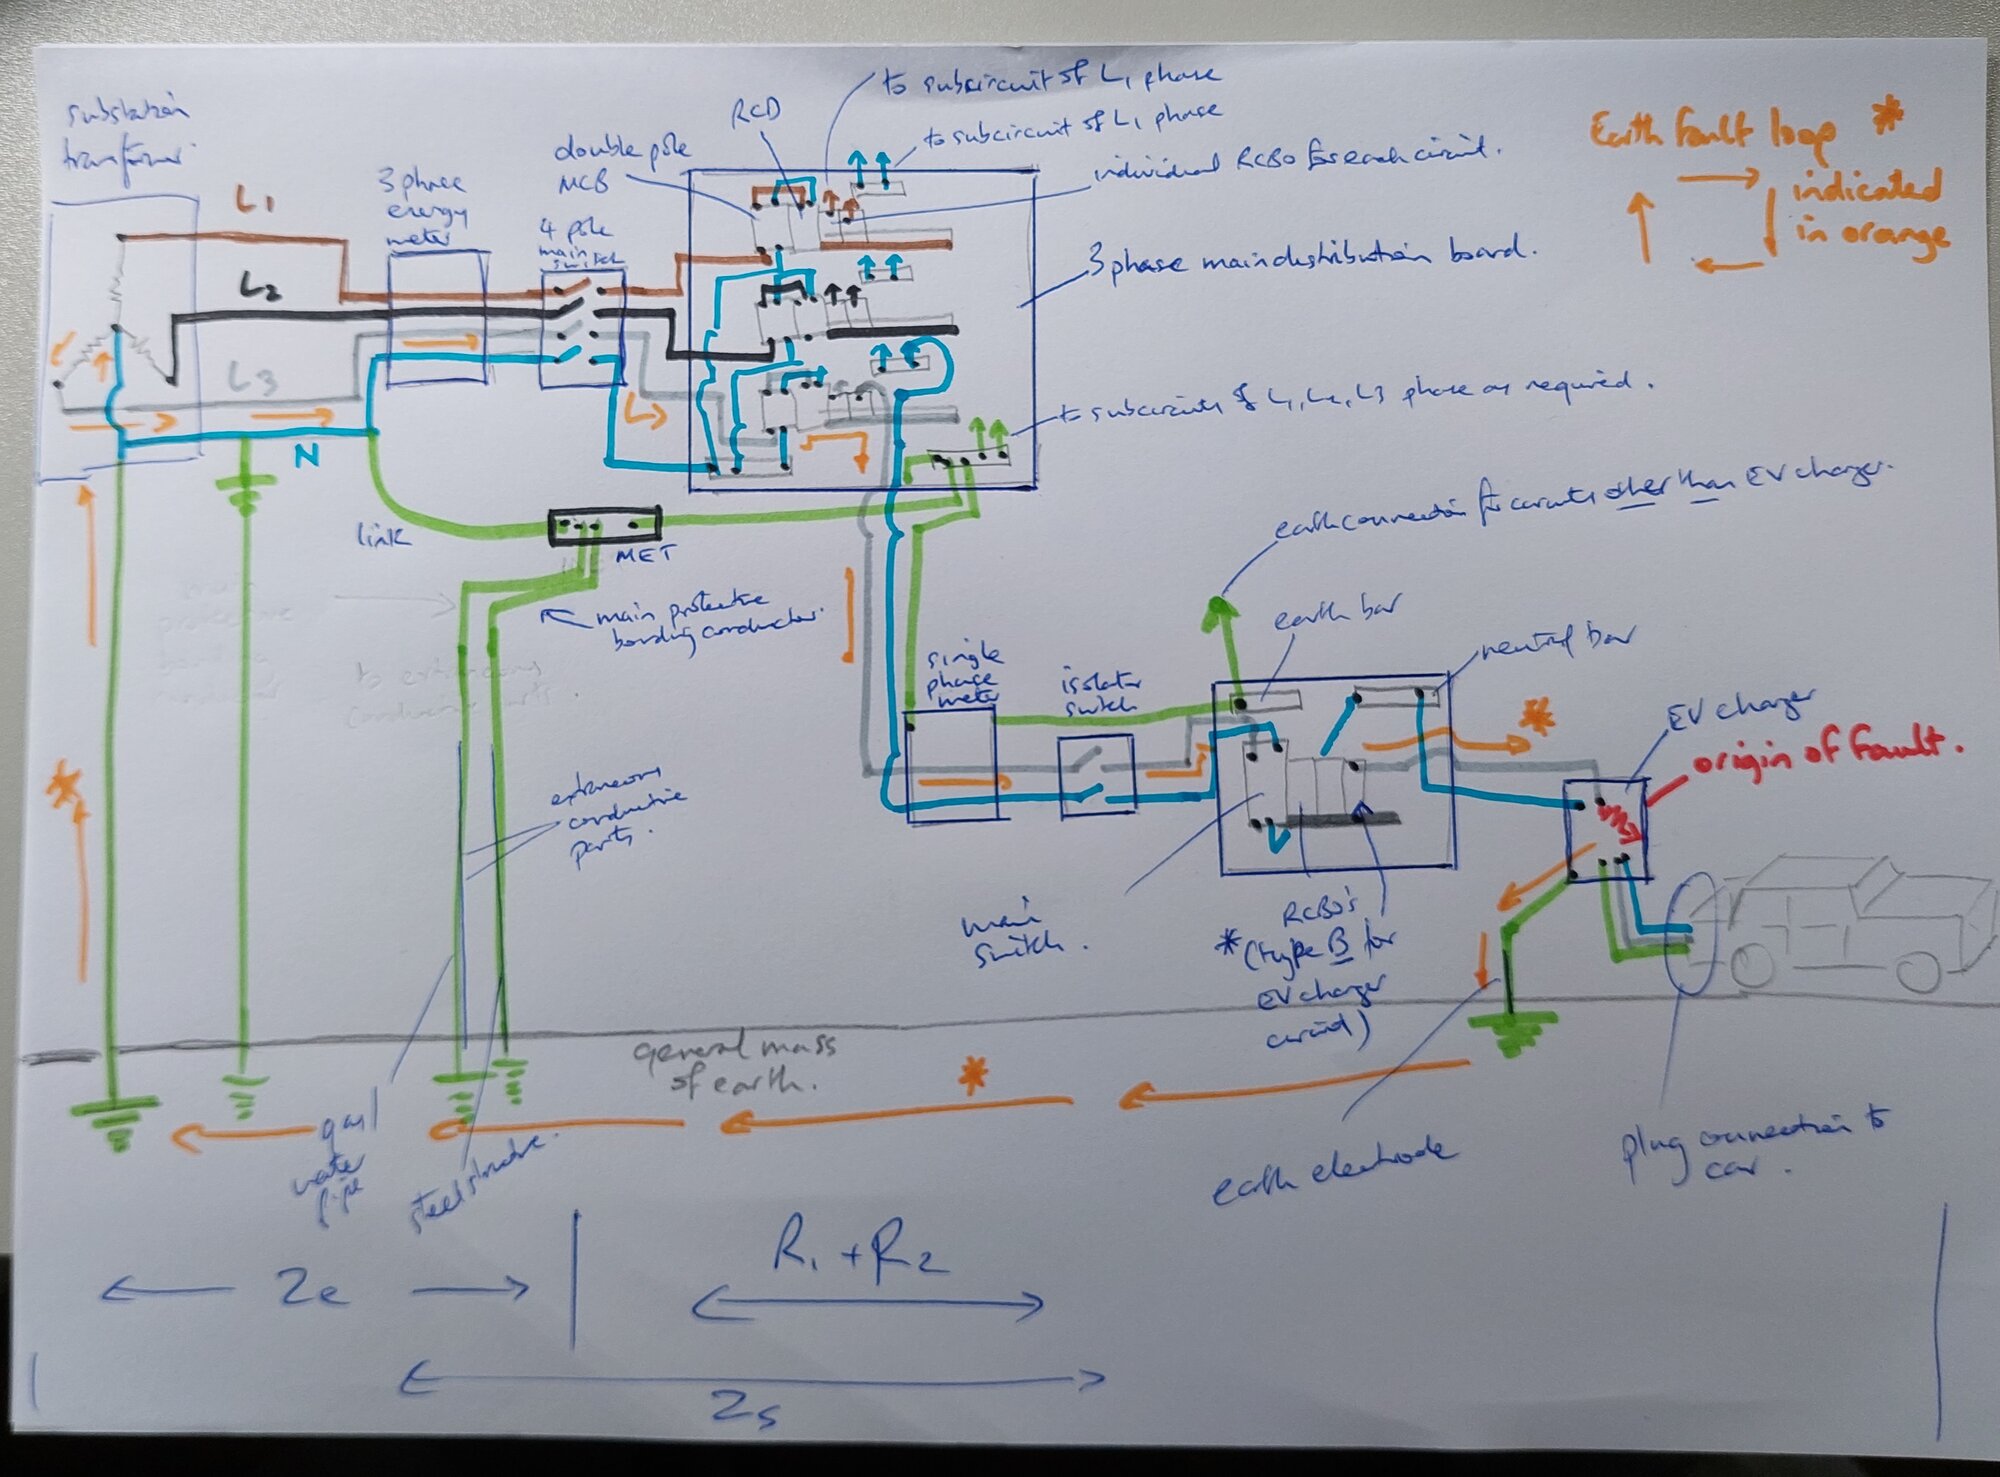 substation
transformer
L1
L2
L3
N
3 phase
energy
meter
4 pole
main
switch
double pole
MCB
RCD
to subcircuit of L1 phase
to subcircuit of L1 phase
individual RCBO for each circuit.
3 phase main distribution board.
to subcircuits of L1, L2, L3 phase as required.
Earth fault loop *
indicated
in orange
link
MET
main protective
bonding conductor.
to extraneous
conductive parts.
extraneous
conductive
parts.
earth connection for circuits other than EV charger.
earth bar
neutral bar
single
phase
meter
isolator
switch
EV charger
origin of fault.
main
switch.
RCBO's
* (type B for
EV charger
circuit)
general mass
of earth.
gas/
water
pipe
steel structure.
earth electrode
plug connection to
car.
Ze
R1 + R2
Zs